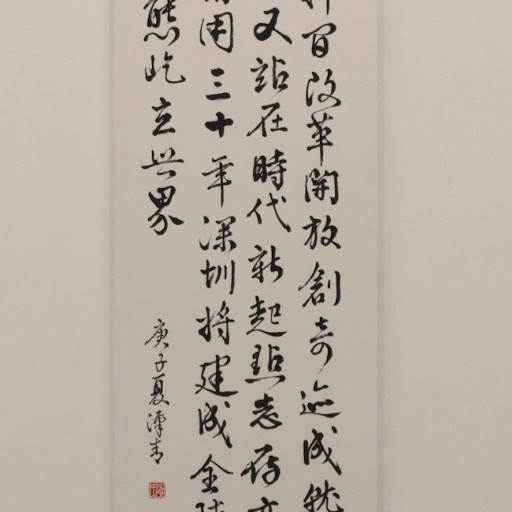 間改革開放創奇迹成就
又站在時代新起點志存高
用三十年深圳將建成全球
態屹立世界
庚子夏漢青